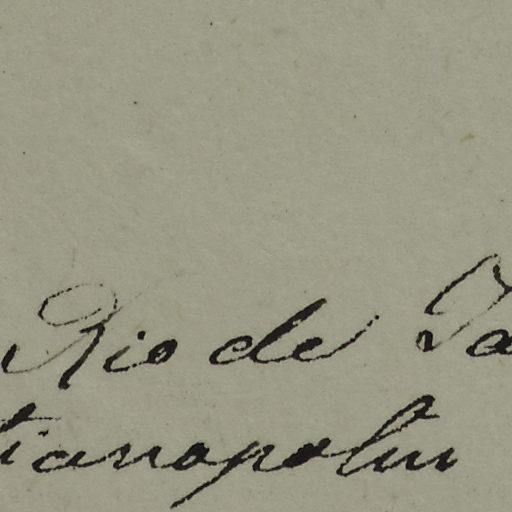 Rio de Ja
tianopolim